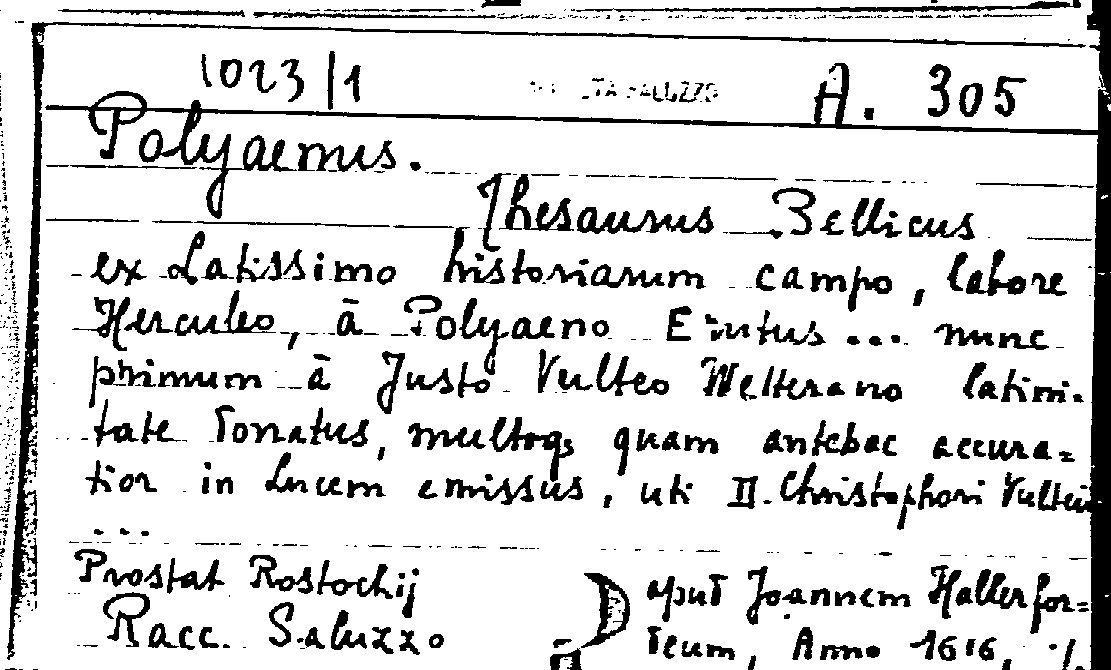 1023/1 A. 305
Polyaenus.
Thesaurus Bellicus
ex Latissimo historiarum campo, labore
Herculeo, ā Polyaeno Erutus ... nunc
primum ā Justo Vulteo Wetterano latini-
tate donatus, multoq; quam antehac accura=
tior in Lucem emissus, uti D. Christophori Vulteii
...
Prostat Rostochij apud Joannem Hallerfor=
Racc. Saluzzo deum, Anno 1616, ./.